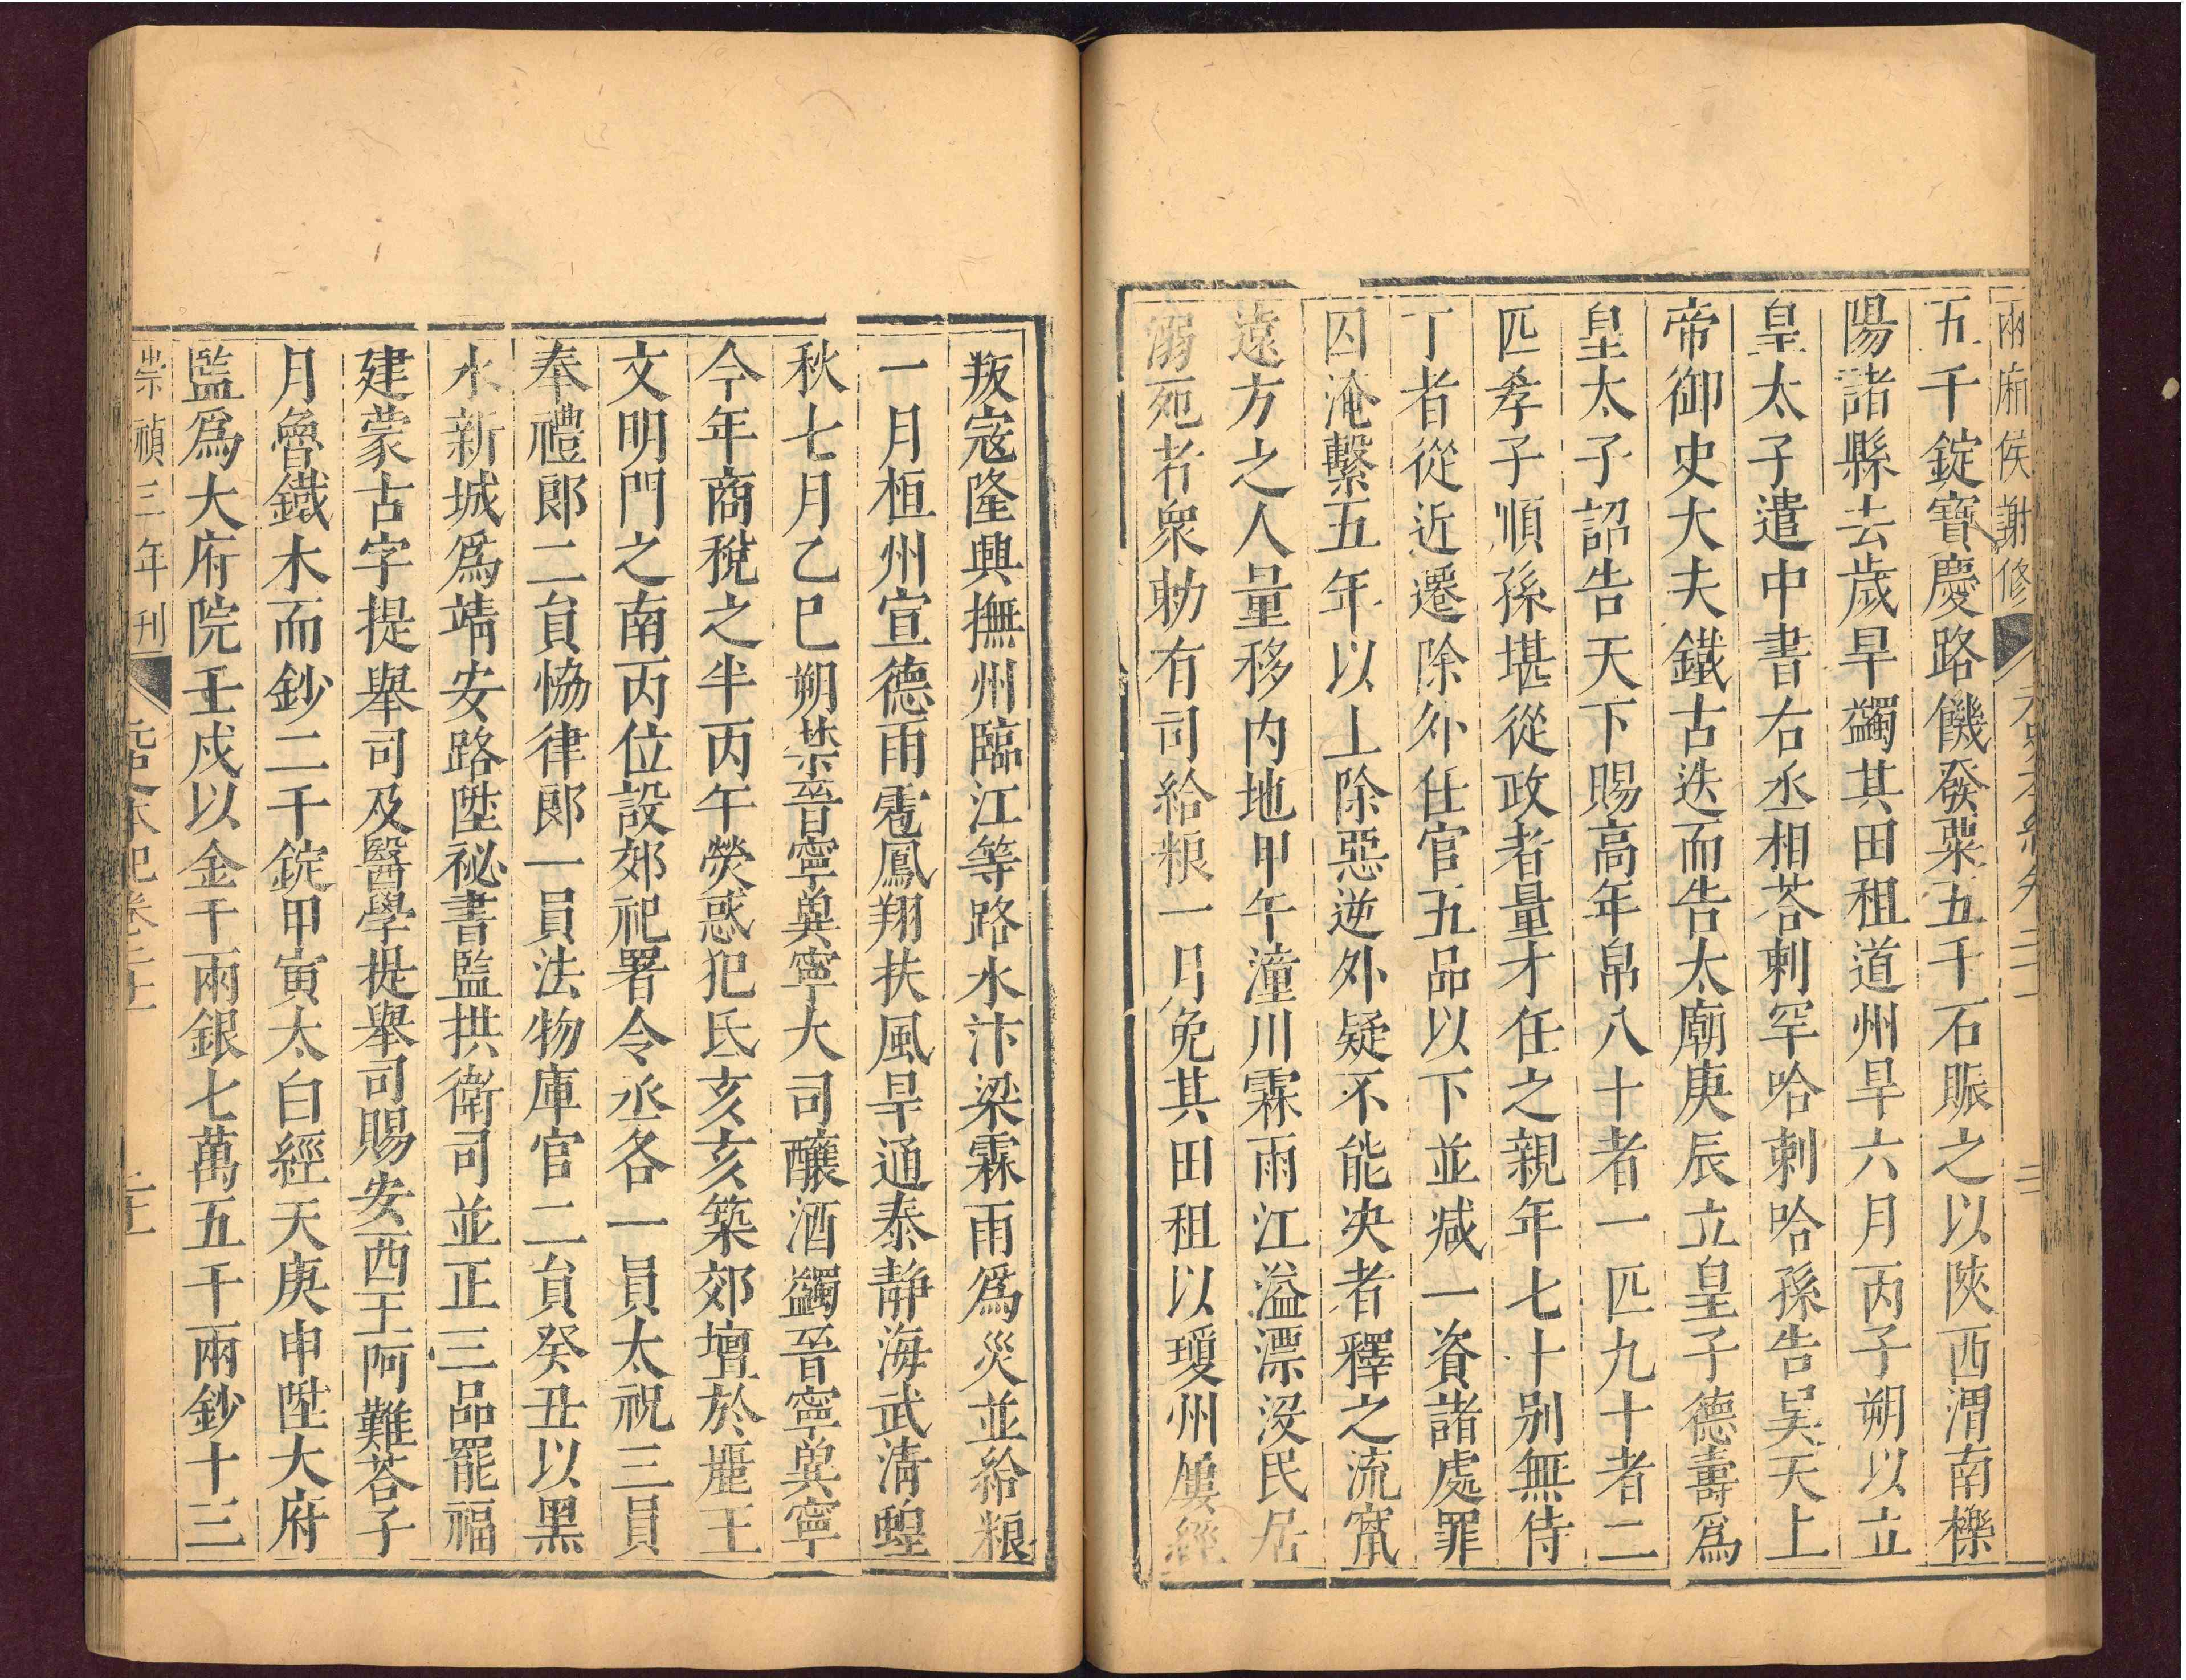 兩廂侯謝修　元史本紀卷二十一　二
五千錠寶慶路饑發粟五千石賑之以陝西渭南櫟
陽諸縣去歲旱蠲其田租道州旱六月丙子朔以立
皇太子遣中書右丞相荅剌罕哈剌哈孫告昊天上
帝御史大夫鐵古迭而告太廟庚辰立皇子德壽爲
皇太子詔告天下賜高年帛八十者一匹九十者二
匹孝子順孫堪從政者量才任之親年七十别無侍
丁者從近遷除外任官五品以下並减一資諸處罪
囚淹繫五年以上除惡逆外疑不能决者釋之流竄
遠方之人量移内地甲午潼川霖雨江溢漂沒民居
溺死者衆勑有司給粮一月免其田租以瓊州屢經
叛寇隆興撫州臨江等路水汴梁霖雨爲災並給粮
一月桓州宣德雨雹鳳翔扶風旱通泰静海武清蝗
秋七月乙巳朔禁晉寧兾寧大司釀酒蠲晉寧兾寧
今年商稅之半丙午熒惑犯氐亥亥築郊壇於麗王
文明門之南丙位設郊祀署令丞各一員太祝三員
奉禮郎二員恊律郎一員法物庫官二員癸丑以黑
水新城爲靖安路陞祕書監拱衛司並正三品罷福
建蒙古字提舉司及醫學提舉司賜安西王阿難荅子
月魯鐵木而鈔二千錠甲寅太白經天庚申陞大府
監爲大府院壬戍以金千兩銀七萬五千兩鈔十三
崇禎三年刊　元史本紀卷二十一